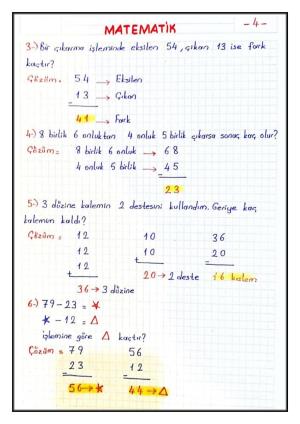 MATEMATİK
- 4 -
3-) Bir çıkarma işleminde eksilen 54, çıkan 13 ise fark
kaçtır?
Çözüm = 54 → Eksilen
13 → Çıkan
-
41 → Fark
4-) 8 birlik 6 onluktan 4 onluk 5 birlik çıkarsa sonuç kaç olur?
Çözüm = 8 birlik 6 onluk → 68
4 onluk 5 birlik → 45
-
23
5-) 3 düzine kalemin 2 destesini kullandım. Geriye kaç
kalemim kaldı?
Çözüm = 12 10 36
12 10 20
12 + -
+ 20 → 2 deste 16 kalem
36 → 3 düzine
6-) 79 - 23 = ★
★ - 12 = △
işlemine göre △ kaçtır?
Çözüm = 79 56
23 12
- -
56 → ★ 44 → △